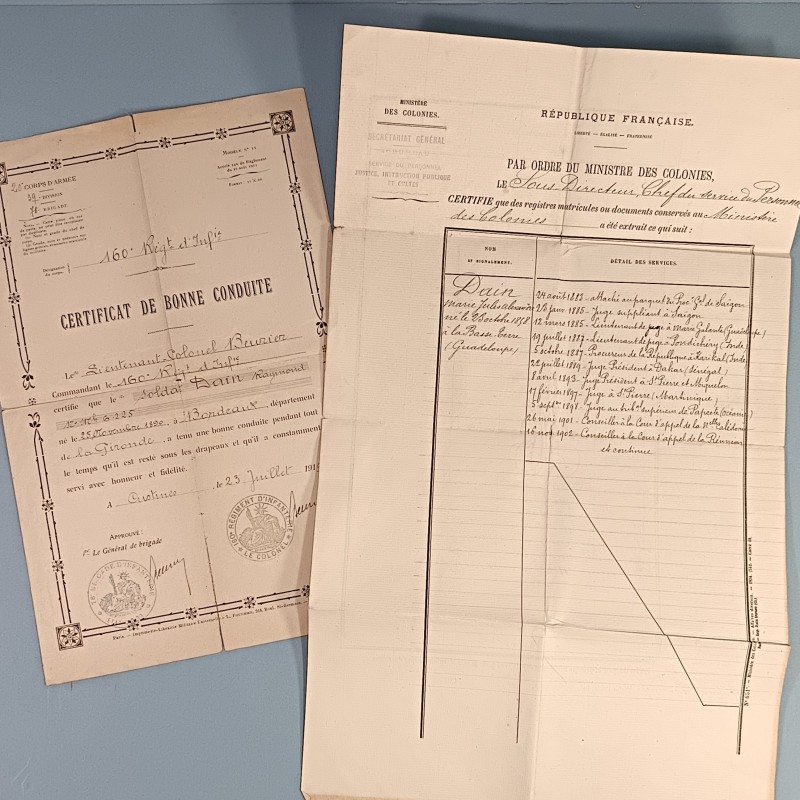 20e CORPS D'ARMÉE
DIVISION
BRIGADE
MODÈLE N° 11
160e Régt d'Infie
CERTIFICAT DE BONNE CONDUITE
Le Lieutenant-Colonel Beuzier
Commandant le 160e Régt d'Infie
certifie que le Soldat Dain Raymond
né le 25 Novembre 1890, à Bordeaux, département
de la Gironde, a tenu une bonne conduite pendant tout
le temps qu'il est resté sous les drapeaux et qu'il a constamment
servi avec honneur et fidélité.
A , le 23 Juillet 191
APPROUVÉ :
Le Général de brigade
160e RÉGIMENT D'INFANTERIE
LE COLONEL
BRIGADE D'INFANTERIE
MINISTÈRE
DES COLONIES.
SECRÉTARIAT GÉNÉRAL
JUSTICE, INSTRUCTION PUBLIQUE
ET CULTES
RÉPUBLIQUE FRANÇAISE.
LIBERTÉ — ÉGALITÉ — FRATERNITÉ
PAR ORDRE DU MINISTRE DES COLONIES,
LE Sous Directeur, Chef du service du Personnel
CERTIFIE que des registres matricules ou documents conservés au Ministère
des Colonies a été extrait ce qui suit :
NOM
ET SIGNALEMENT.
DÉTAIL DES SERVICES.
Dain
Marie Jules
né le 23 octobre 1858
à la Basse Terre
(Guadeloupe)
24 août 1883 - attaché au parquet du Proc. Gal de Saïgon
23 janv 1885 - Juge suppléant à Saïgon
12 mars 1885 - Lieutenant de juge à Marie Galante (Guadeloupe)
19 juillet 1887 - Lieutenant de juge à Pondichéry (Inde)
5 octobre 1887 - Procureur de la République à Karikal (Inde)
22 juillet 1889 - Juge Président à Dakar (Sénégal)
8 avril 1893 - Juge Président à St Pierre et Miquelon
17 février 1897 - Juge à St Pierre (Martinique)
5 septbre 1898 - Juge au tribal supérieur de Papeete (Océanie)
26 mai 1901 - Conseiller à la Cour d'appel de la Nelle Calédonie
16 nov 1902 - Conseiller à la Cour d'appel de la Réunion
et continue